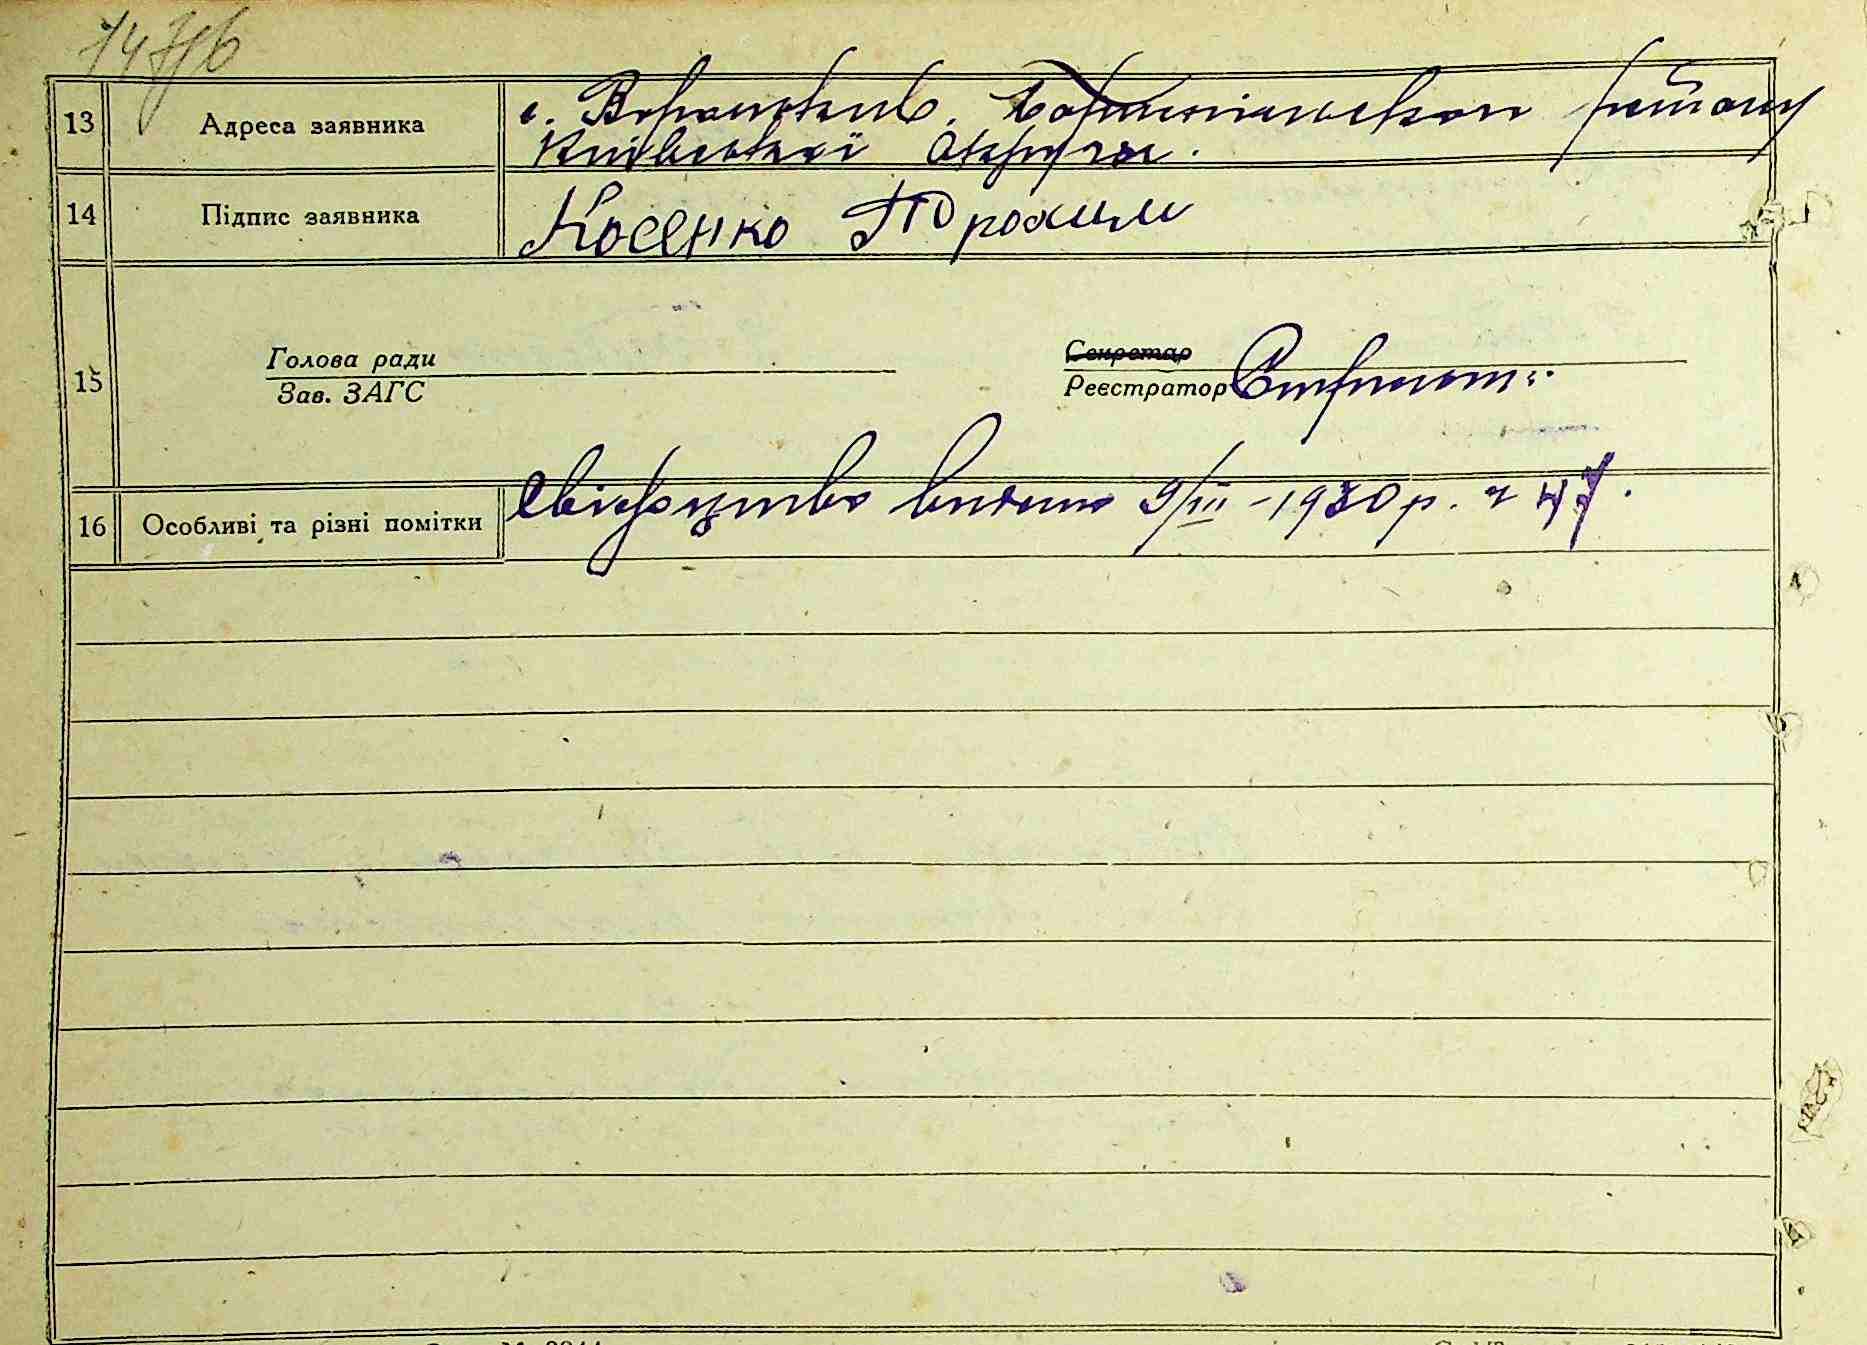 13 Адреса заявника с. Вороньків. Бориспільського району
Київської округи.
14 Підпис заявника Косенко Трохим
15 Голова ради Секретар
Зав. ЗАГС Реєстратор
16 Особливі та різні помітки Свідоцтво видано 9/III – 1930 р. ч 47.